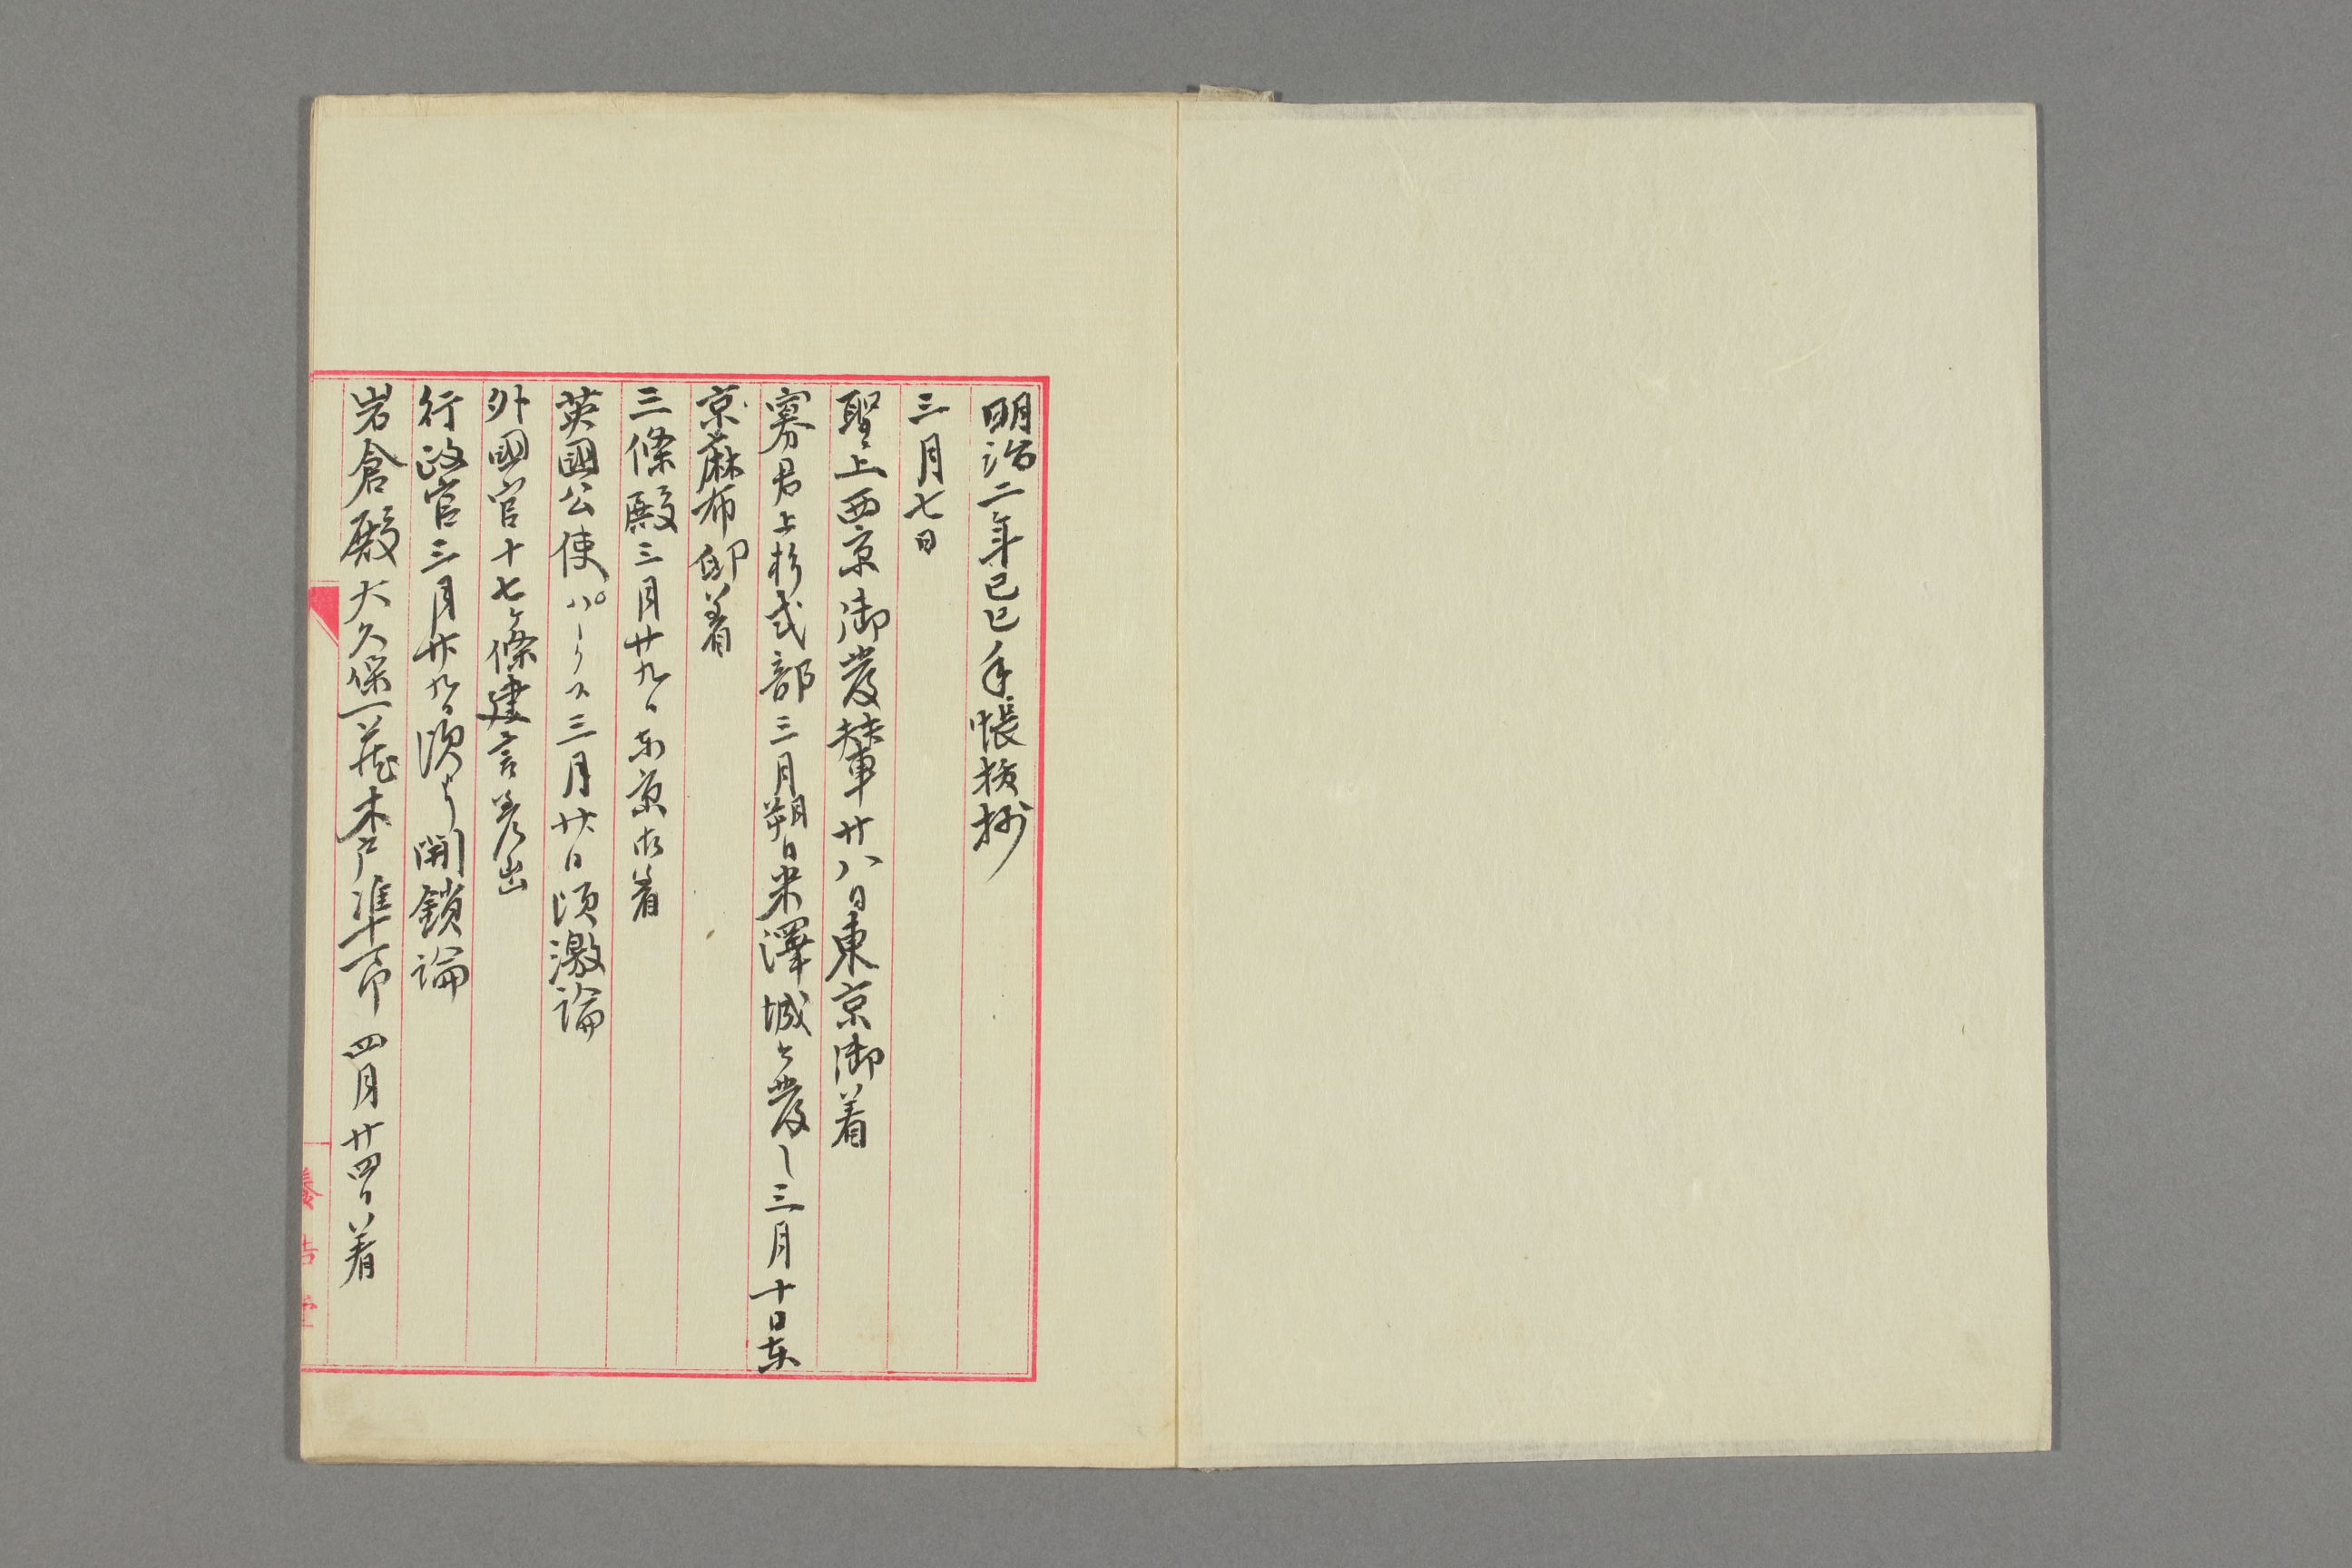 明治二年己巳手帳抜抄
三月七日
聖上西京御發輦廿八日東京御着
寡君上杉式部三月朔日米澤城ヲ發シ三月十日東
京麻布邸着
三條殿三月廿九日東京御着
英國公使パークス三月廿日頃激論
外國官十七ヶ條建言差出
行政官三月廿九日頃ヨリ開鎖論
岩倉殿大久保一蔵木戸準一郎四月廿四日着